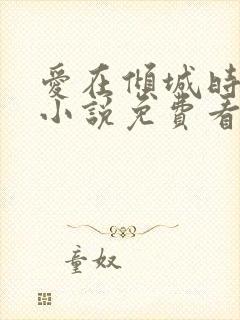 愛在傾城時
小說免費看
童奴